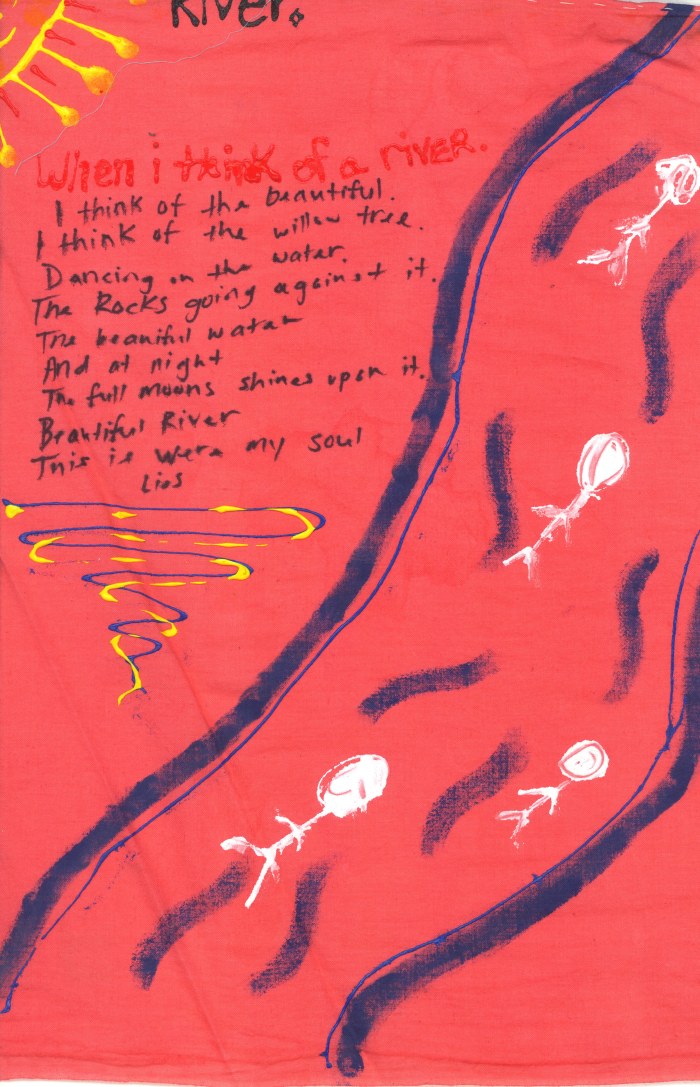 River.
When i think of a river.
I think of the beautiful.
I think of the willow tree.
Dancing on the water.
The Rocks going against it.
The beauiful water
And at night
The full moons shines upon it.
Beautiful River
This is were my soul
Lies